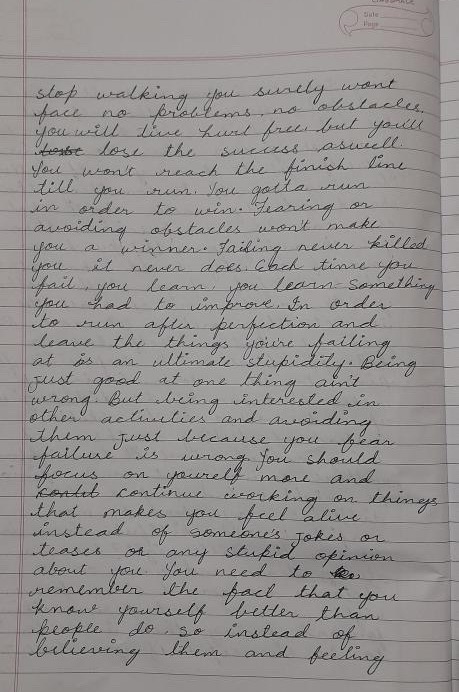 CLASSMATE
Date
Page
stop walking you surely wont
face no problems, no obstacles,
you will live hurt free, but you'll
lose the success aswell.
You won't reach the finish line
till you run. You gotta run
in order to win. Fearing or
avoiding obstacles won't make
you a winner. Failing never killed
you it never does. Each time you
fail, you learn, you learn something
you had to improve. In order
to run after perfection and
leave the things you're failing
at is an ultimate stupidity. Being
just good at one thing ain't
wrong. But being interested in
other activities and avoiding
them just because you fear
failure is wrong. You should
focus on yourself more and
continue working on things
that makes you feel alive
instead of someone's jokes or
teases or any stupid opinion
about you. You need to
remember the fact that you
know yourself better than
people do. So instead of
believing them and feeling